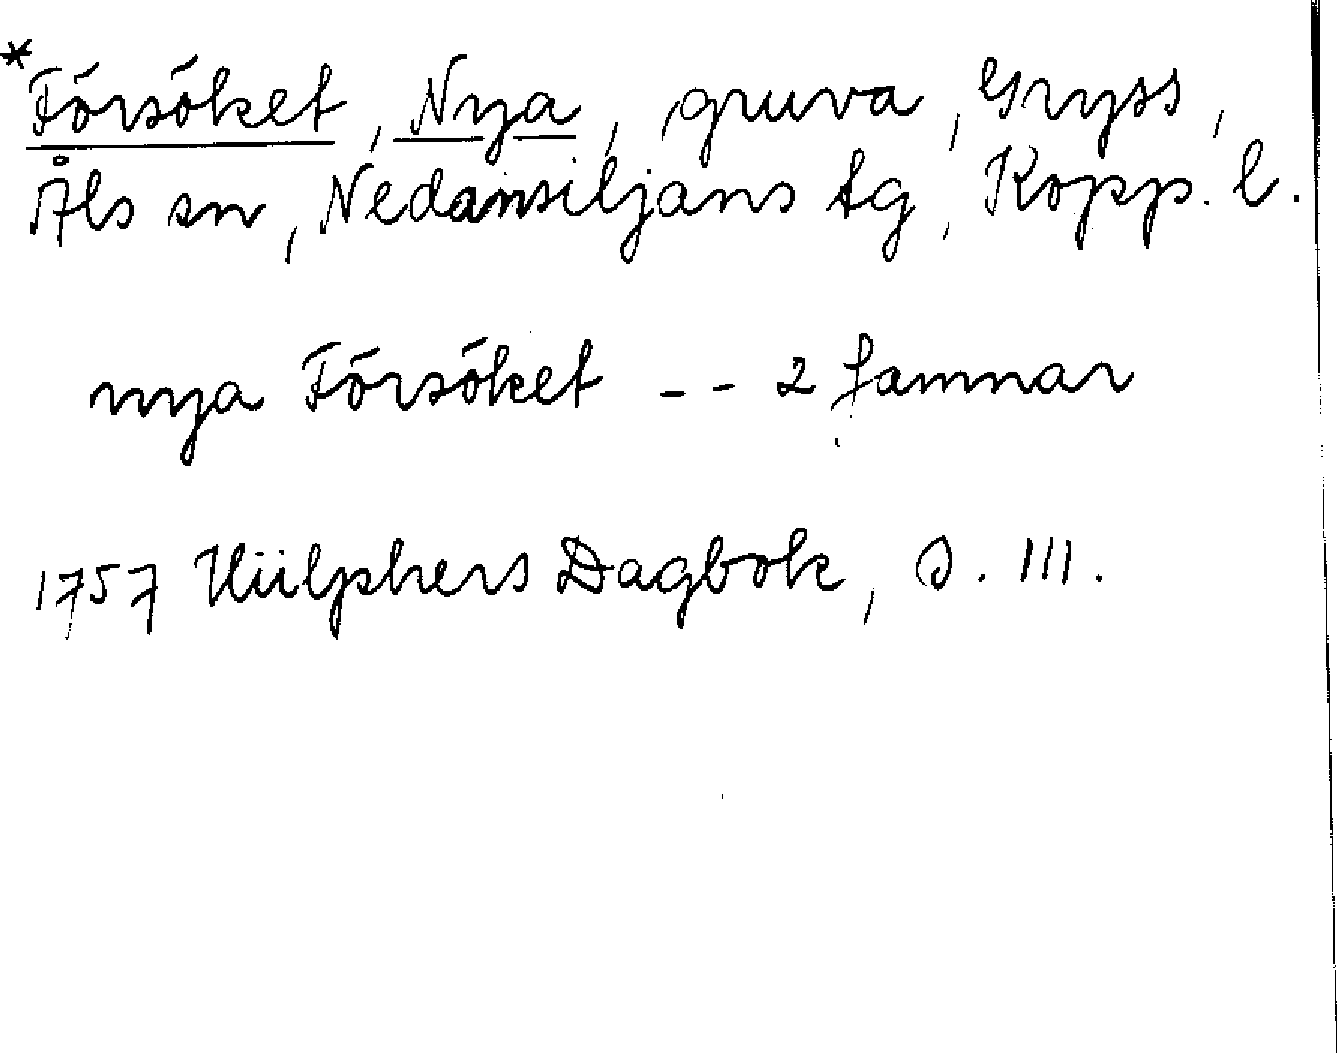 *Försöket, Nya, gruva, Gryss,
Åls sn, Nedansiljans tg, Kopp. l.
nya Försöket -- 2 famnar
1757 Hülphers Dagbok, s. 111.